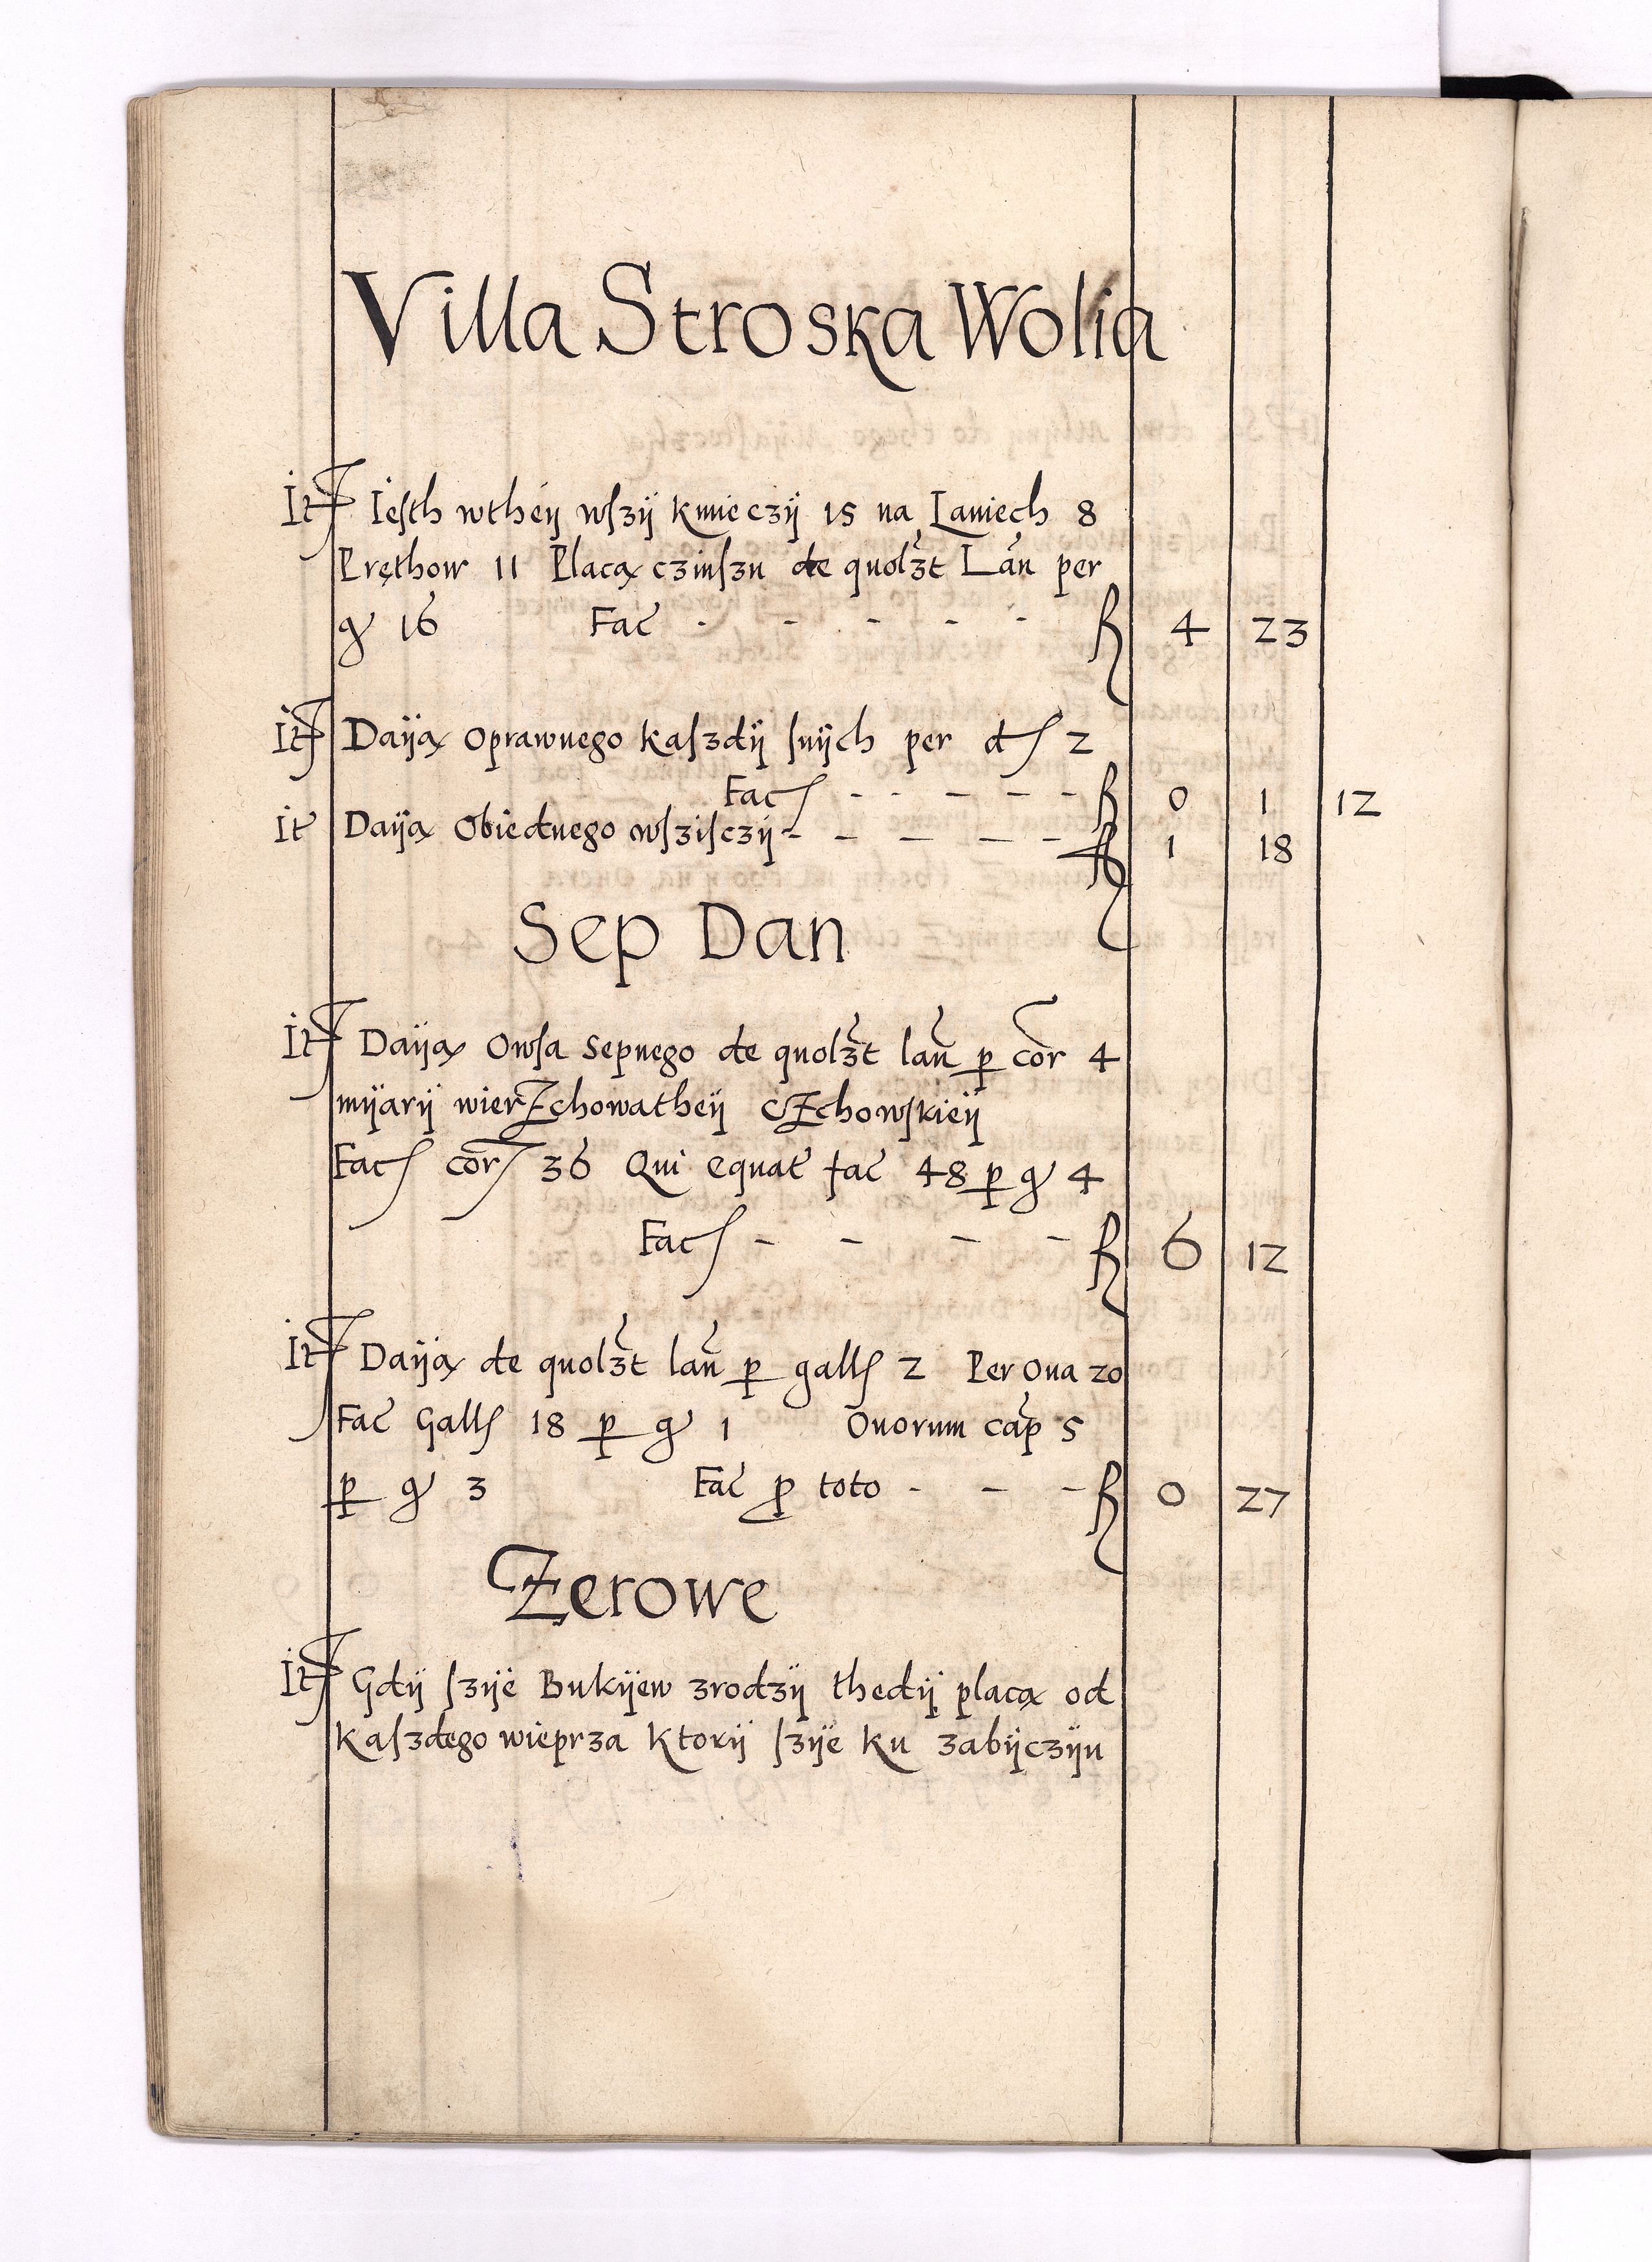 Villa Stroska Wolia
It Iesth wtheÿ wſzÿ kmieczÿ 15 na Laniech 8
Pręthow 11 Placą czinſzu de quolʒt Lan per
gr 16 Fac - - - - - fl 4 23
It Daÿą Oprawnego kaſzdÿ ſnÿch per d 2
Fac - - - - - fl 0 1 12
It Daÿą Obiednego wſziſczÿ - - - - - fl 1 18
Sep Dan
It Daÿą Owſa Sepnego de quolʒt lan p cor 4
mÿarÿ wierZchowatheÿ cZchowſkieÿ
Fac cor 36 Qui equat fac 48 p gr 4
Fac - - - - fl 6 12
It Daÿą de quolʒt lan p gall 2 Per Oua 20
Fac Gall 18 p gr 1 Ouorum cap 5
p gr 3 Fac p toto - - - fl 0 27
CZerowe
It Gdÿ ſzÿe Bukÿew zrodzÿ thedÿ placą od
Kaſzdego wieprza Ktorÿ ſzÿe Ku zabÿczÿu